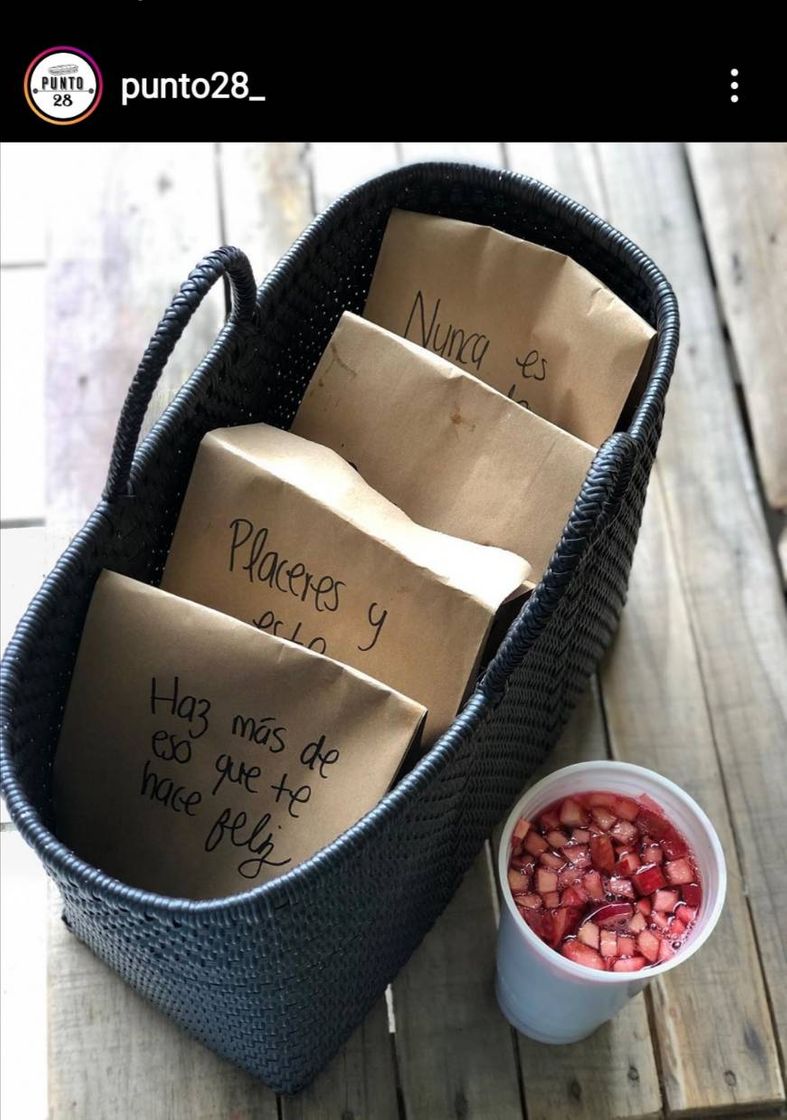 PUNTO
28
punto28_
Nunca es
Placeres y
esto
Haz más de
eso que te
hace feliz